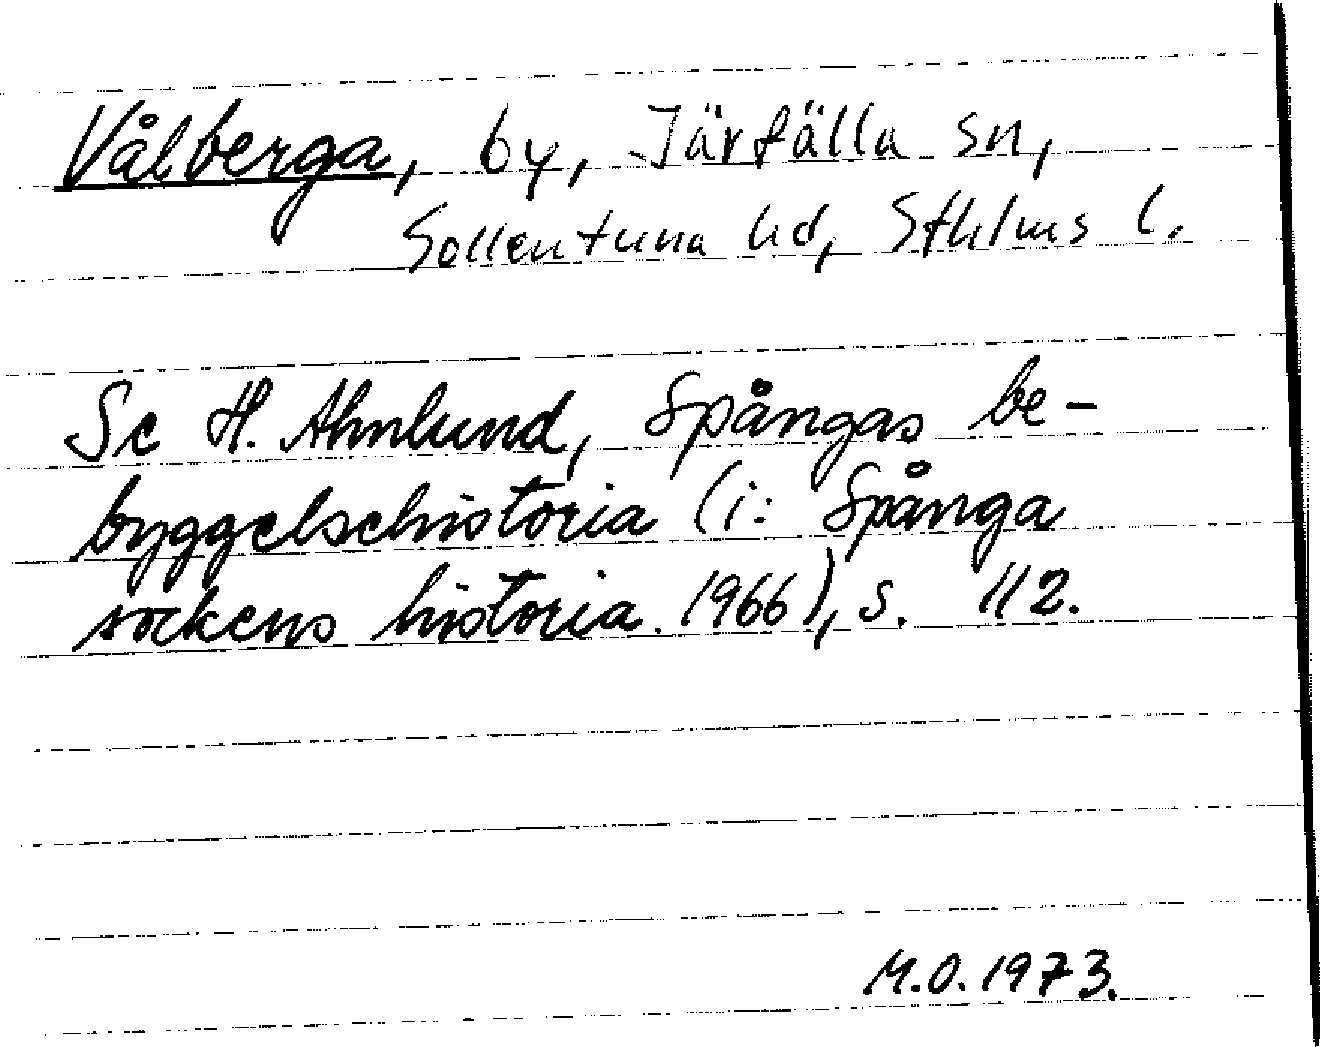 Vålberga, by, Järfälla sn,
Sollentuna hd, Sthlms l.
Se H. Ahnlund, Spångas be-
byggelsehistoria (i: Spånga
sockens historia. 1966), s. 112.
M.O. 1973.